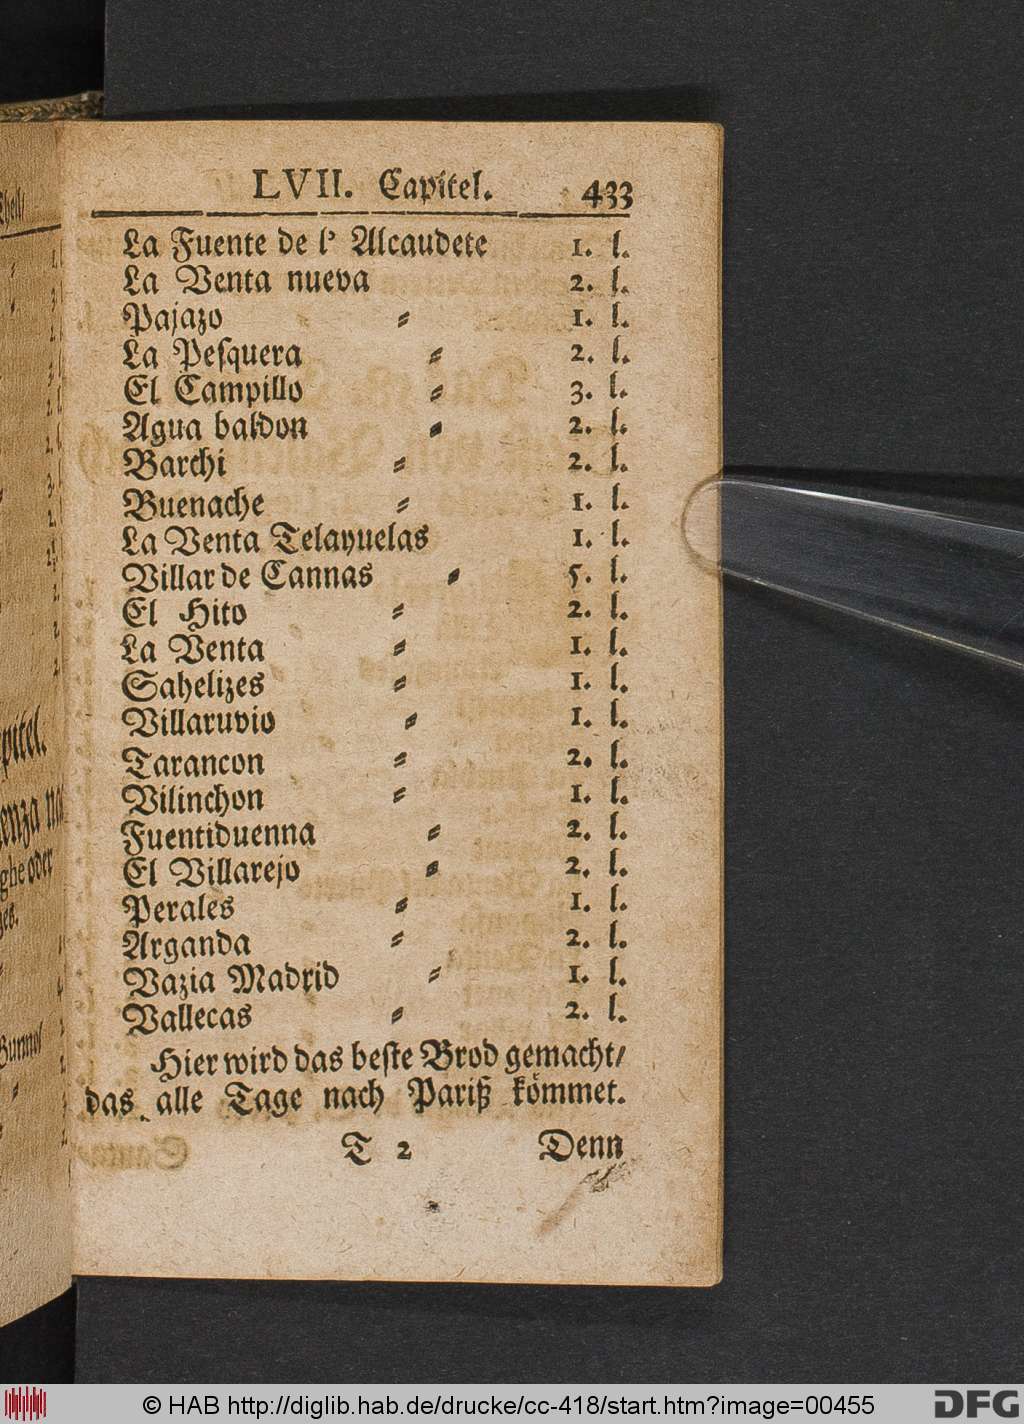 LVII. Capitel. 433
La Fuente de l' Alcaudete 1. l.
La Venta nueva 2. l.
Pajazo ⸗ 1. l.
La Peſquera ⸗ 2. l.
El Campillo ⸗ 3. l.
Agua baldon ⸗ 2. l.
Barchi ⸗ 2. l.
Buenache ⸗ 1. l.
La Venta Telayuelas 1. l.
Villar de Cannas ⸗ 5. l.
El Hito ⸗ 2. l.
La Venta ⸗ 1. l.
Sahelizes ⸗ 1. l.
Villaruvio ⸗ 1. l.
Tarancon ⸗ 2. l.
Vilinchon ⸗ 1. l.
Fuentiduenna ⸗ 2. l.
El Villarejo ⸗ 2. l.
Perales ⸗ 1. l.
Arganda ⸗ 2. l.
Vazia Madrid ⸗ 1. l.
Vallecas ⸗ 2. l.
Hier wird das beſte Brod gemacht/
das alle Tage nach Pariß kömmet.
T 2 Denn
© HAB http://diglib.hab.de/drucke/cc-418/start.htm?image=00455
DFG